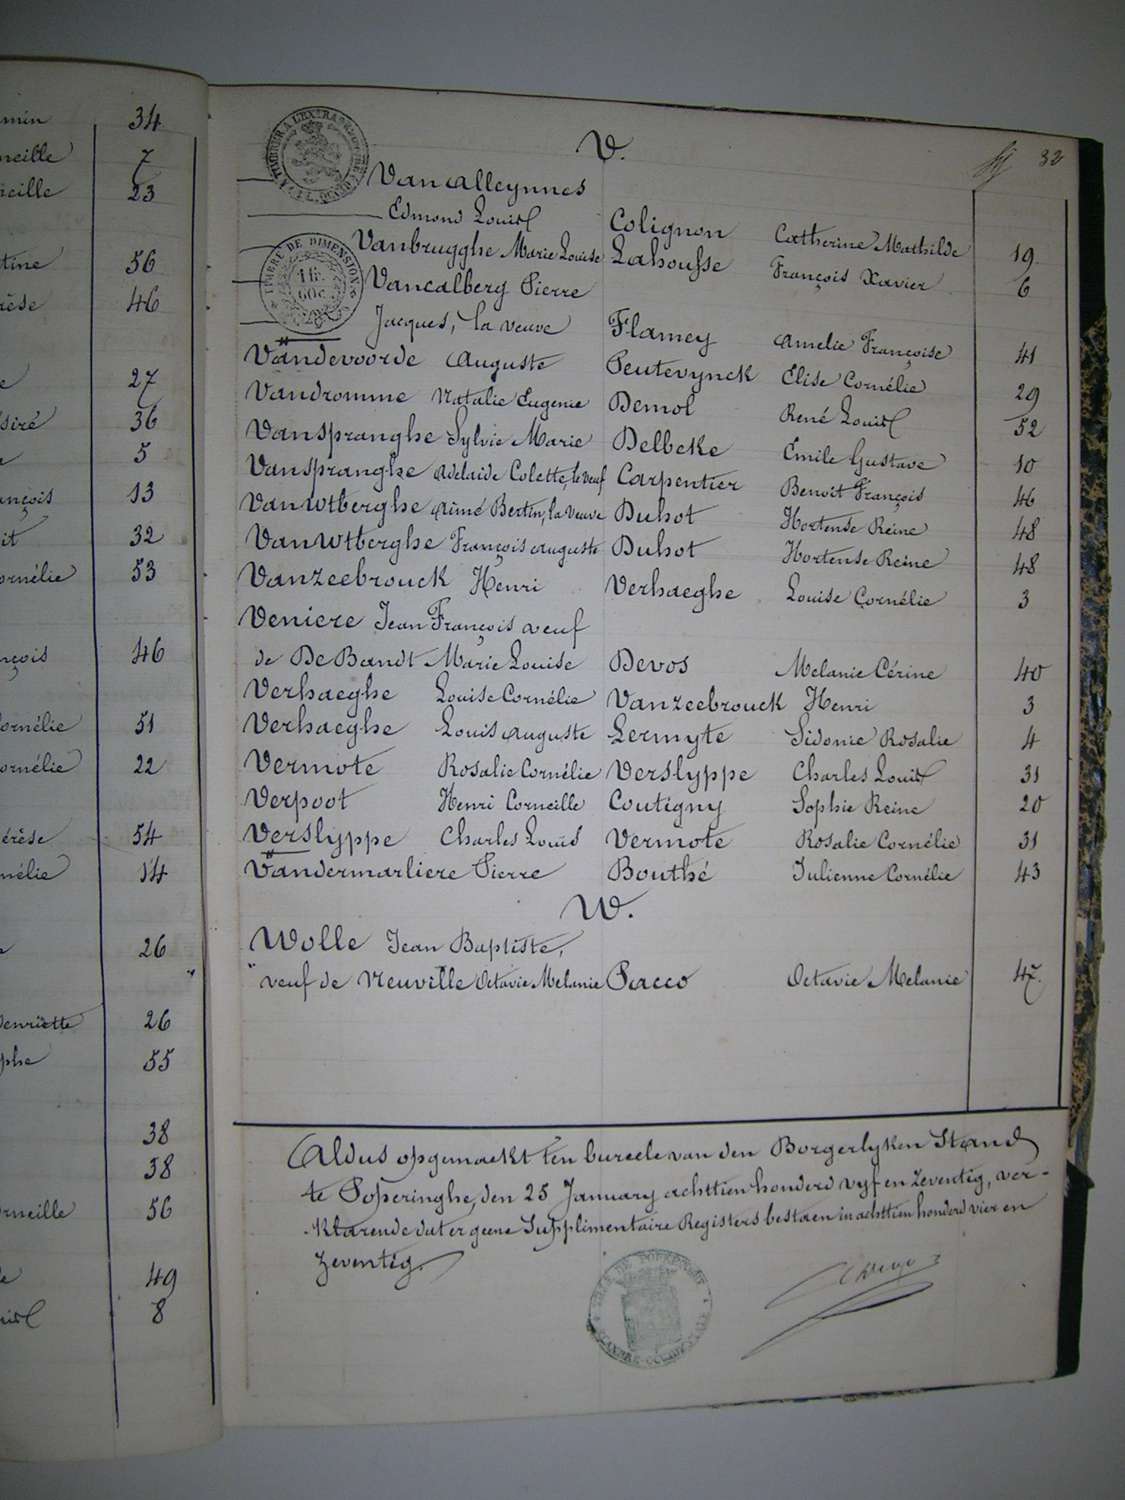 34
7
23
56
46
27
36
5
13
32
53
46
51
22
54
14
26
26
55
38
38
56
49
8
32
V.
Vanalleynnes
Edmond Louis Colignon Catherine Mathilde 19
Vanbrugghe Marie Louise Lahousse François Xavier 6
Vancalberg Pierre
Jacques, la veuve Flamey Amelie Françoise 41
Vandevoorde Auguste Peutevynck Elise Cornélie 29
Vandromme Natalie Eugenie Demol René Louis 52
Vanspranghe Sylvie Marie Delbeke Emile Gustave 10
Vanspranghe Adelaide Colette, le veuf Carpentier Benoit François 46
Vanwtberghe Aimé Bertin, la veuve Duhot Hortense Reine 48
Vanwtberghe François Auguste Duhot Hortense Reine 48
Vanzeebrouck Henri Verhaeghe Louise Cornélie 3
Veniere Jean François veuf
de De Bandt Marie Louise Devos Melanie Cérine 40
Verhaeghe Louise Cornélie Vanzeebrouck Henri 3
Verhaeghe Louis Auguste Lermyte Sidonie Rosalie 4
Vermote Rosalie Cornélie Verslyppe Charles Louis 31
Verpoot Henri Corneille Coutigny Sophie Reine 20
Verslyppe Charles Louis Vermote Rosalie Cornélie 31
Vandermarliere Pierre Bouthé Julienne Cornélie 43
W.
Wolle Jean Baptiste,
veuf de Neuville Octavie Melanie Pacco Octavie Melanie 47.
Aldus opgemaekt ten bureele van den Borgerlyken Stand
te Poperinghe, den 25 January achttien honderd vyf en zeventig, ver-
klarende dat er geene Supplimentaire Registers bestaen in achttien honderd vier en
zeventig.
TIMBRE DE DIMENSION
1 fr.
60 c.